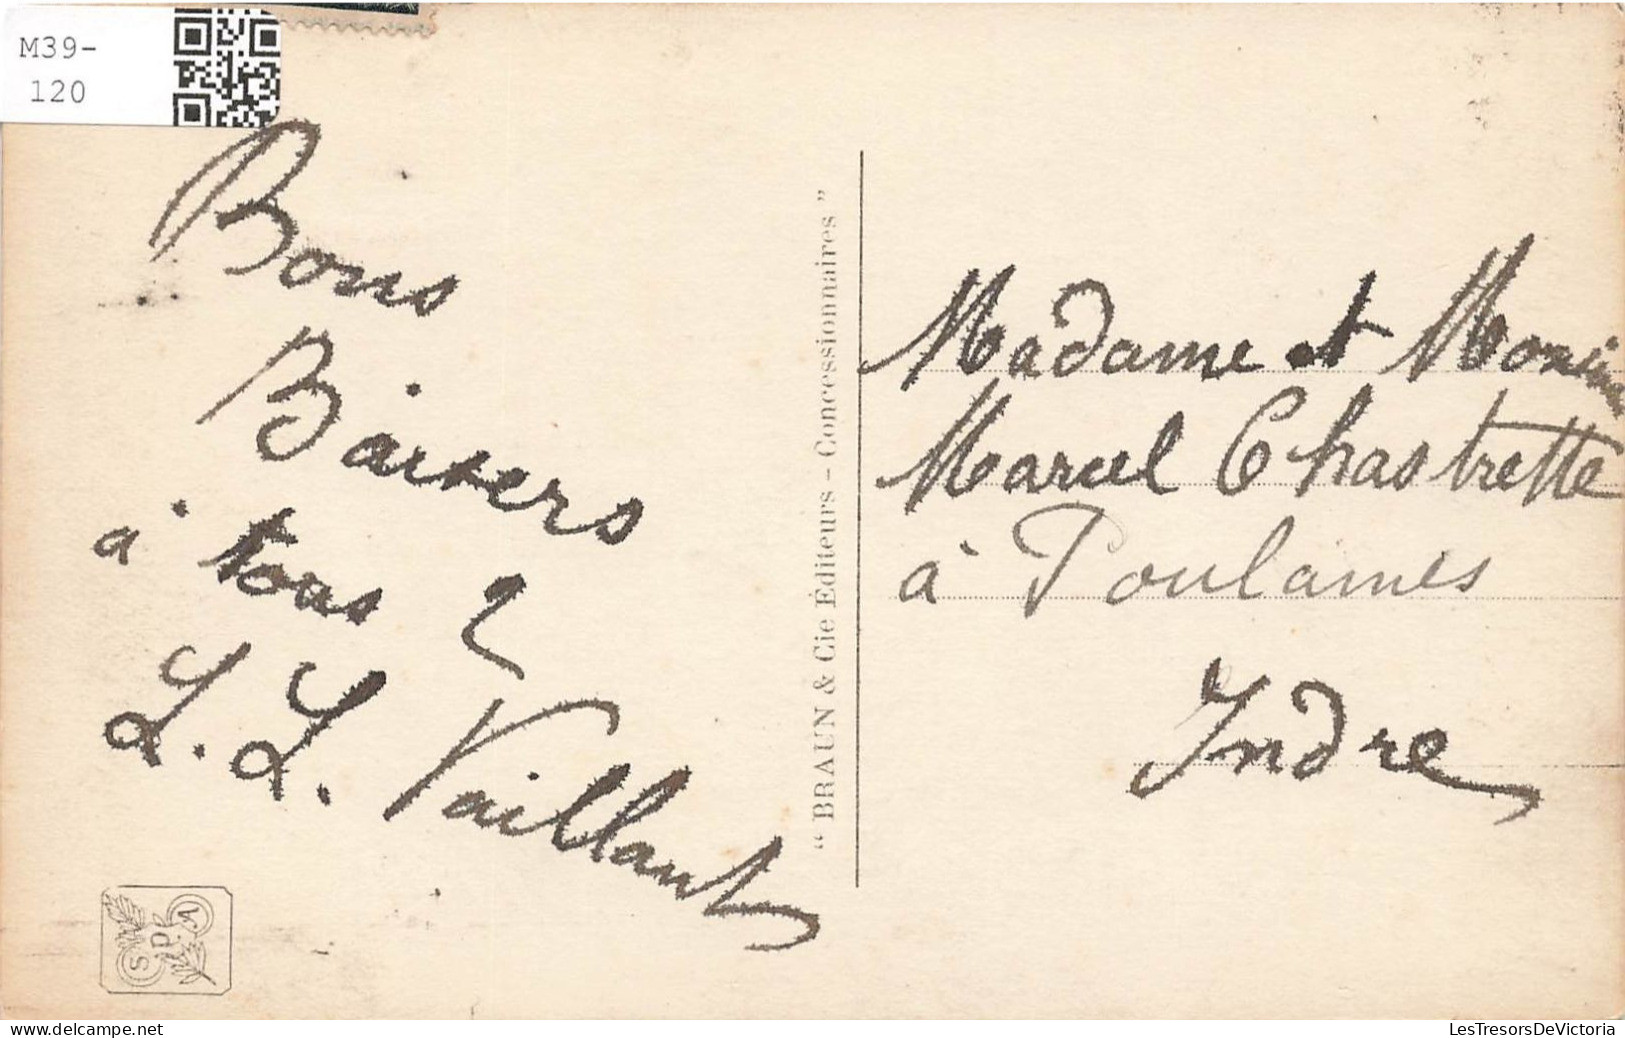 M39-
120
Bons
Baisers
à tous 2
L. L. Vaillant
" BRAUN & Cie Éditeurs - Concessionnaires "
Madame et
Marcel Chastrette
à Poulaines
Indre
S.P.A
delcampe.net
LesTresorsDeVictoria